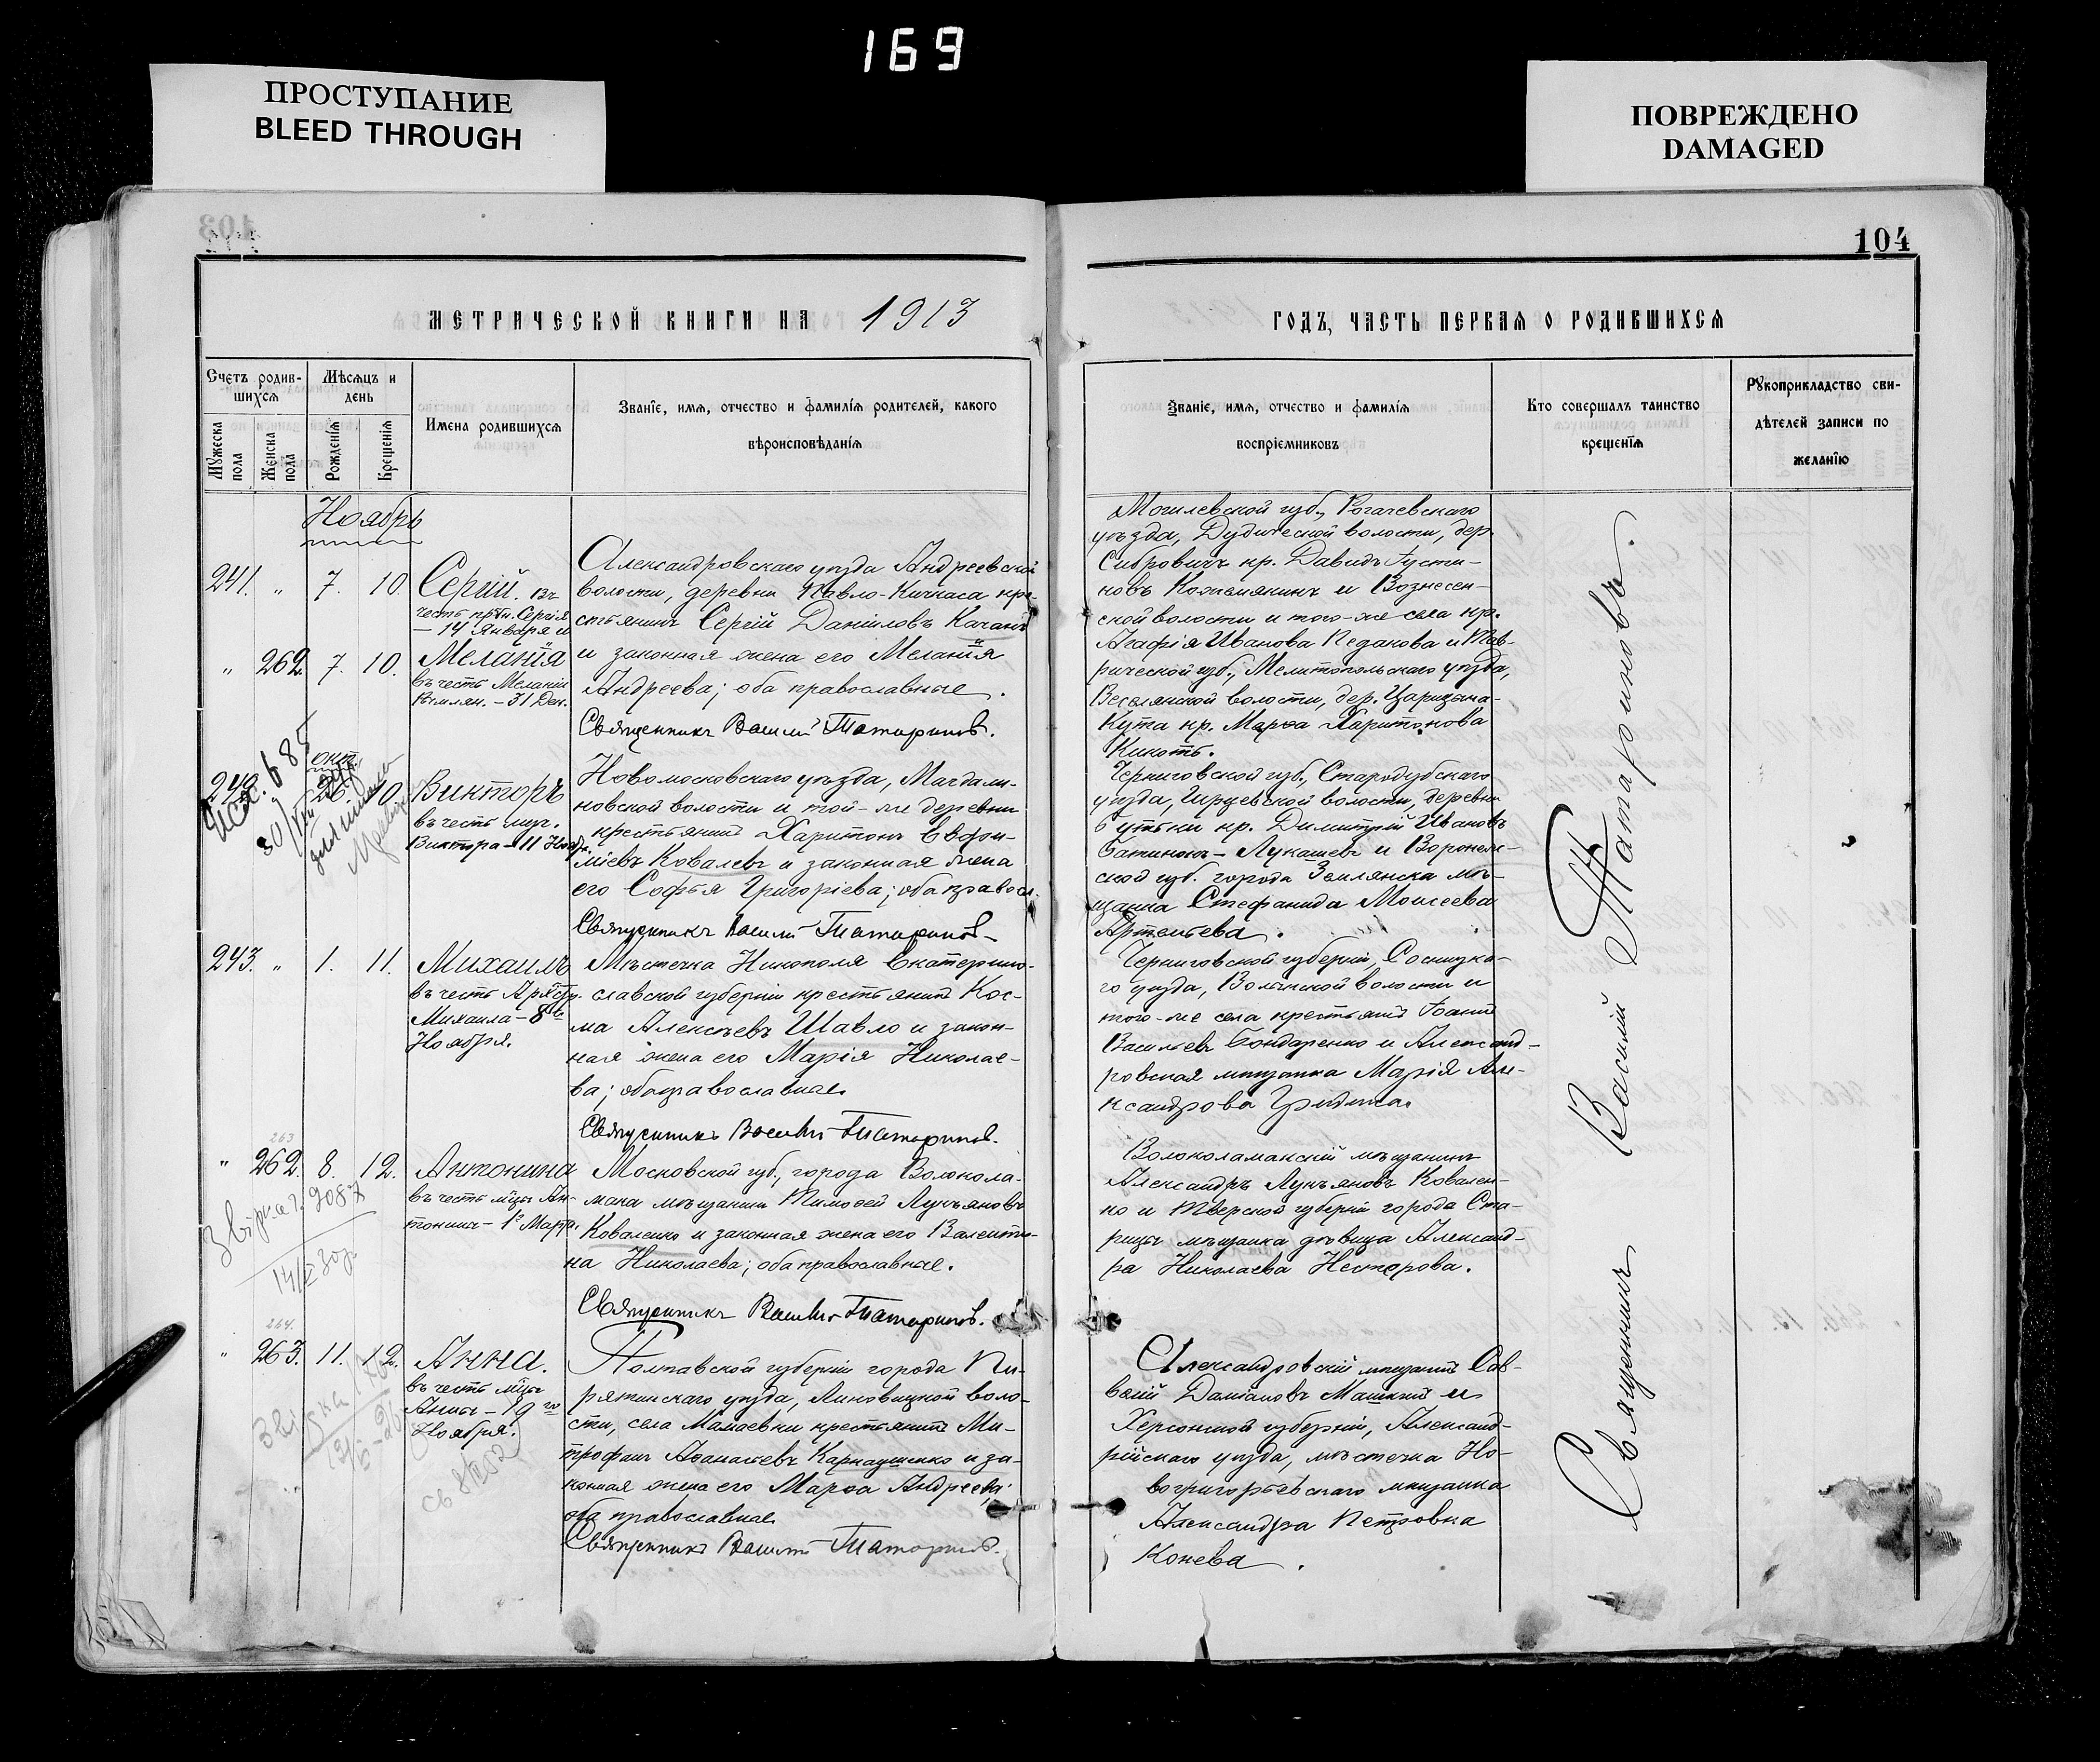 169
ПРОСТУПАНИЕ
BLEED THROUGH
ПОВРЕЖДЕНО
DAMAGED
104
МЕТРИЧЕСКОЙ КНИГИ НА 1913
ГОДЪ, ЧАСТЬ ПЕРВАЯ О РОДИВШИХСЯ
Счетъ родив-
шихся
Мужеска пола
Женска пола
Мѣсяцъ и
день
Рожденія
Крещенія
Имена родившихся
Званіе, имя, отчество и фамилія родителей, какого
вѣроисповѣданія
Званіе, имя, отчество и фамилія
воспріемниковъ
Кто совершалъ таинство
крещенія
Рукоприкладство сви-
дѣтелей записи по
желанію
Ноябрь
241. " 7. 10. Сергій. Въ
честь Сергія
– 14 Января и
" 262. 7. 10. Меланія
въ честь Меланіи
Римлян. – 31 Дек.
Александровскаго уѣзда Андреевской
волости, деревни Павло-Кичкаса кре-
стьянинъ Сергій Даниловъ Качанъ
и законная жена его Меланія
Андреева; оба православные.
Священникъ Василій Татариновъ.
Могилевской губ., Рогачевскаго
уѣзда, Дудичской волости, дер.
кр. Давидъ Густи-
новъ Кожемякинъ и Вознесен-
ской волости и того-же села кр.
Агафія Иванова Педакова и Тав-
рической губ., Мелитопольскаго уѣзда,
Веселянской волости, дер. Царицына-
Кута кр. Марѳа Харитонова
242. окт. 26. 10. Викторъ
въ честь муч.
Виктора – 11 Нояб.
Новомосковскаго уѣзда, Магдали-
новской волости и той-же деревни
крестьянинъ Харитонъ Евфи-
міевъ Ковалевъ и законная жена
его Софья Григоріева; оба правосл.
Священникъ Василій Татариновъ
Черниговской губ., Стародубскаго
уѣзда, волости, деревни
кр. Димитрій Ивановъ
Лукашевъ и Воронеж-
ской губ. города Землянска мѣ-
щанка Стефанида Моисеева
Артемьева.
243. " 1. 11. Михаилъ
въ честь Архистр.
Михаила – 8го
Ноября.
Мѣстечка Никополя Екатерино-
славской губерніи крестьянинъ Кос-
ма Алексѣевъ Шавло и закон-
ная жена его Марія Николае-
ва; оба православные.
Священникъ Василій Татариновъ.
Черниговской губерніи, Сосницка-
го уѣзда, Волынской волости и
того-же села крестьянинъ Іоаннъ
Васильевъ Бондаренко и Александ-
ровская мѣщанка Марія Але-
ксандрова
263
" 262. 8. 12. Антонина
въ честь мцы Ан-
тонины – 1го Марта.
Московской губ., города Волокола-
мска мѣщанинъ Тимоѳей Лукьяновъ
Коваленко и законная жена его Валенти-
на Николаева; оба православные.
Священникъ Василій Татариновъ.
Волоколамскій мѣщанинъ
Александръ Лукьяновъ Ковален-
ко и Тверской губерніи города Ста-
рицы мѣщанка дѣвица Александ-
ра Николаева Нестерова.
264.
" 263. 11. 12. Анна.
въ честь мцы
Анны – 19го
Ноября.
Полтавской губерніи города Пи-
рятинскаго уѣзда, Линовицкой воло-
сти, села Мамаевки крестьянинъ Ми-
трофанъ Аѳанасьевъ Карнаушенко и за-
конная жена его Марѳа Андреева;
оба православные.
Священникъ Василій Татариновъ.
Александровскій мѣщанинъ Сав-
ватій Даміановъ Машкинъ и
Херсонской губерніи, Александ-
рійскаго уѣзда, мѣстечка Но-
вогригорьевскаго мѣщанка
Александра Петровна
Конева.
Священникъ Василій Татариновъ.